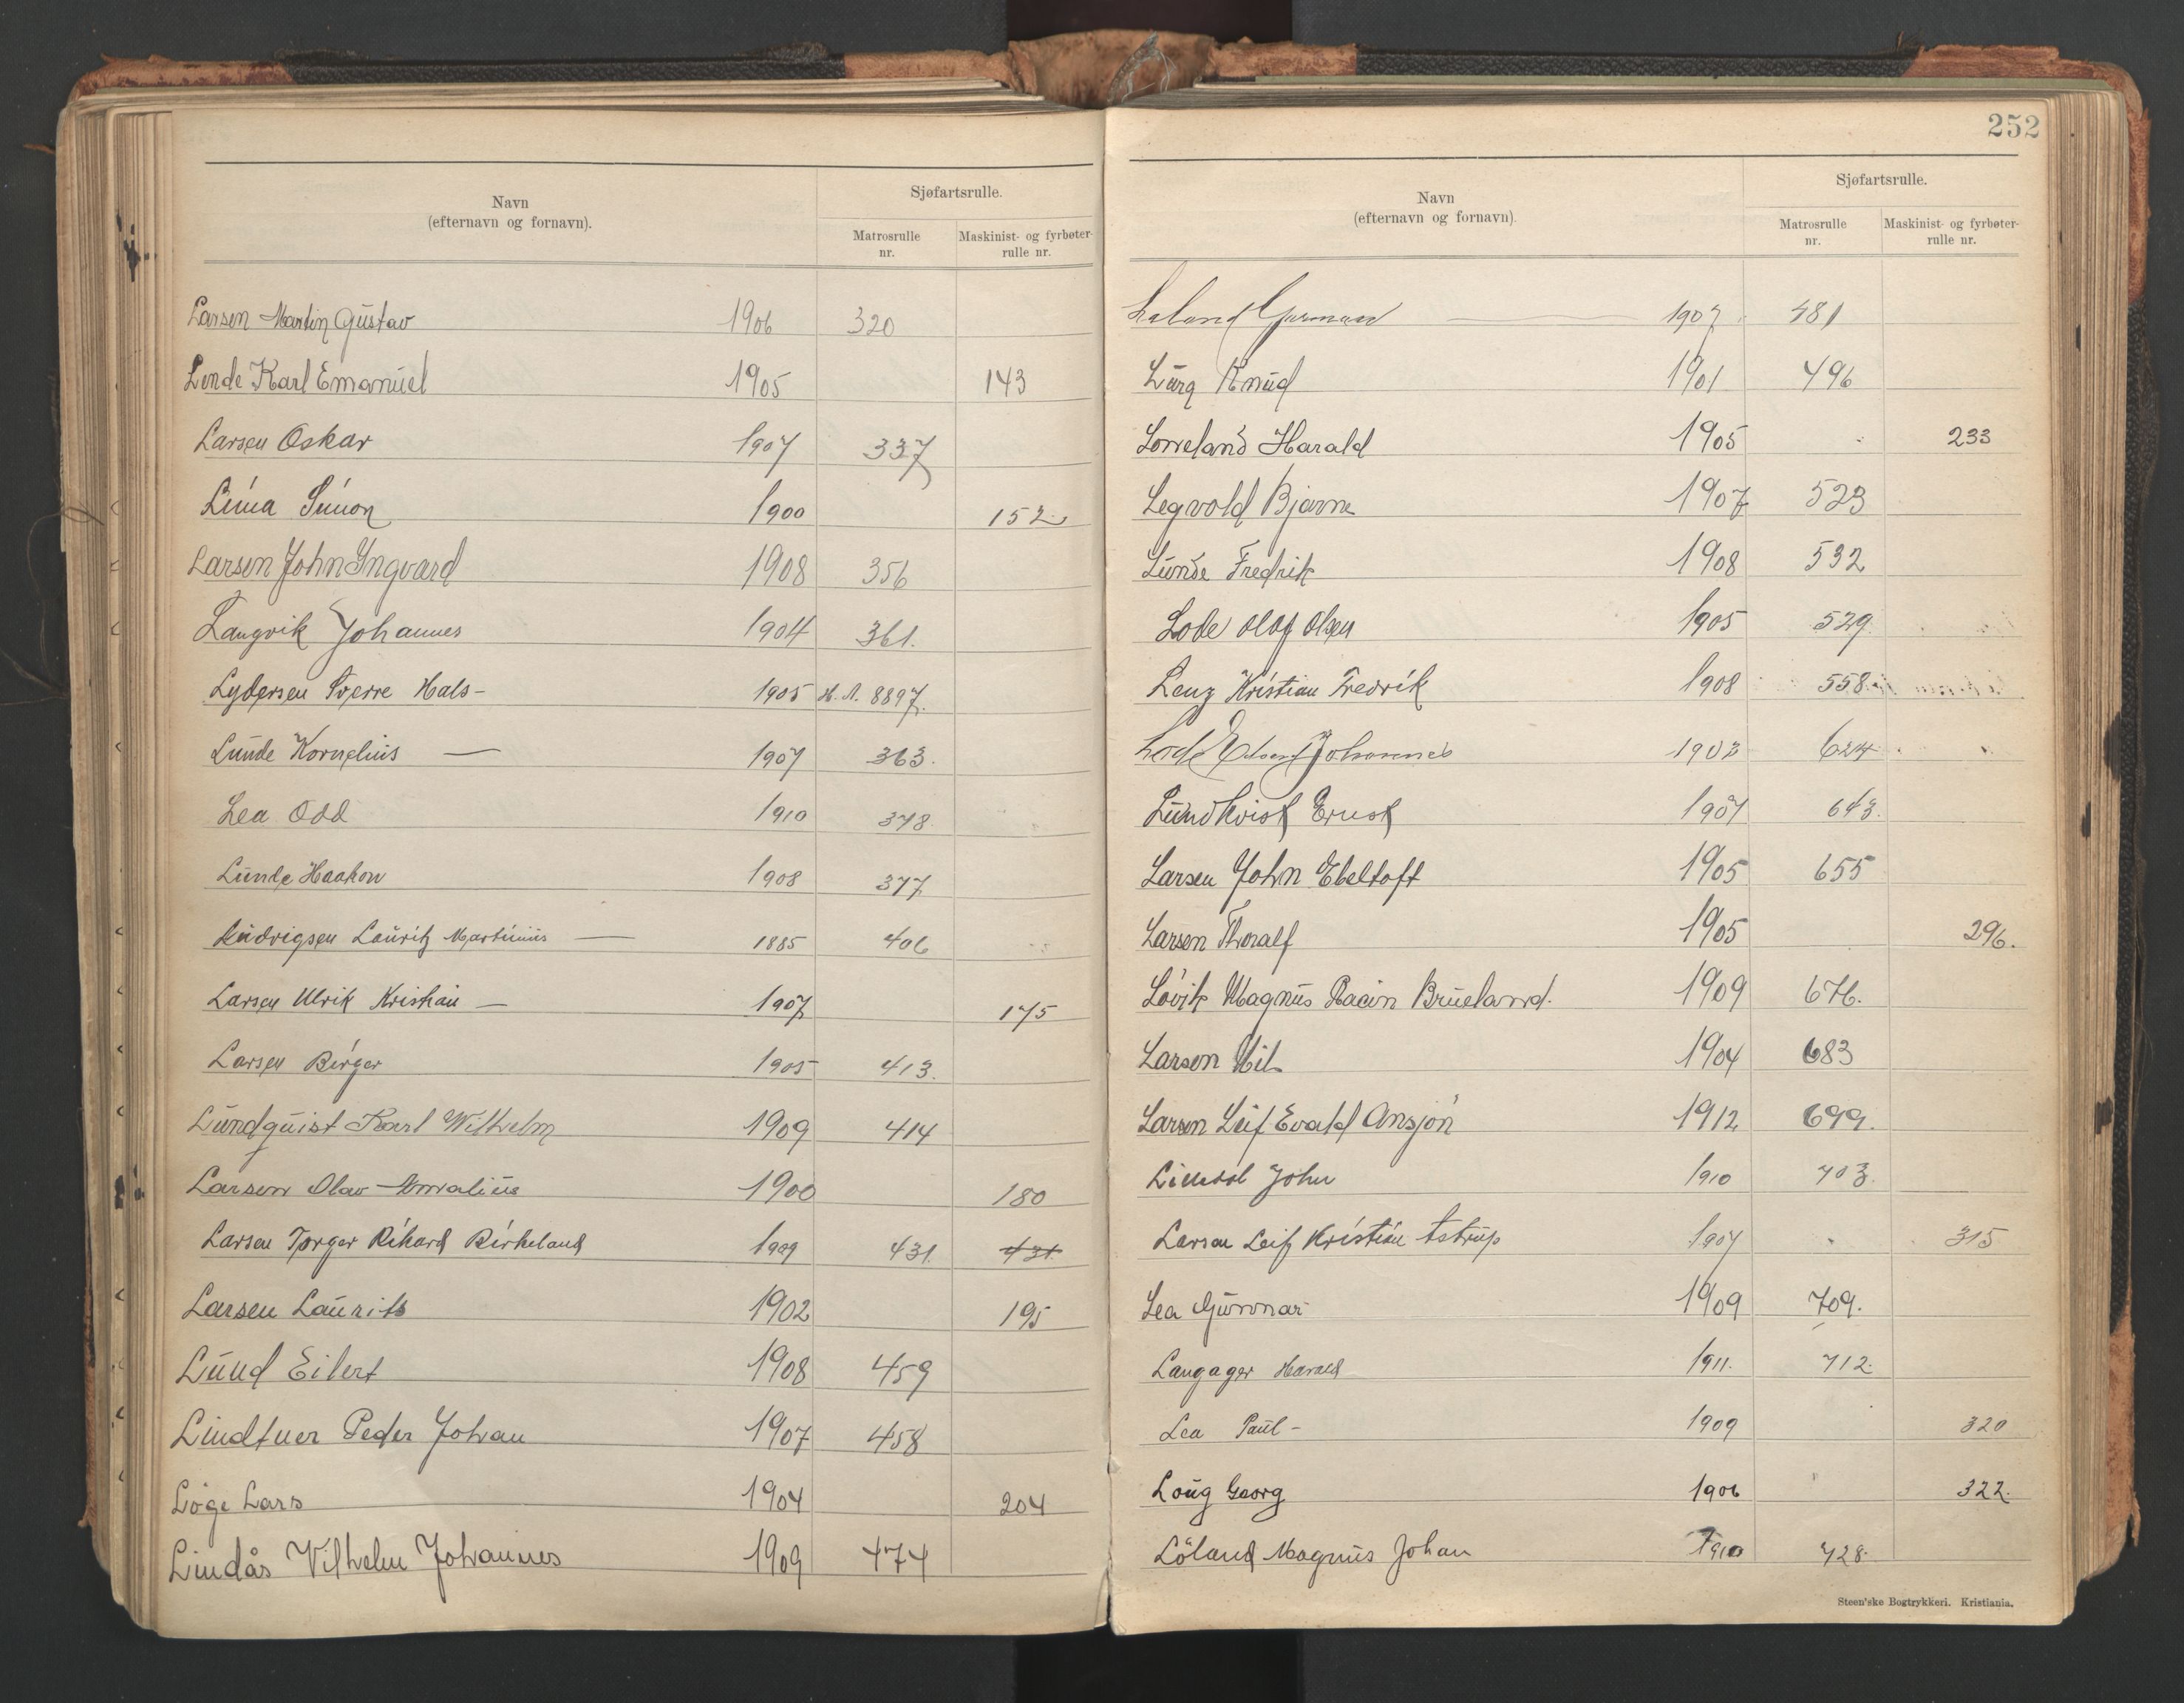 Navn
(efternavn og fornavn).
Sjøfartsrulle.
Matrosrulle nr.
Maskinist- og fyrbøter-rulle nr.
Larsen Martin Gustav 1906 320
Lende Karl Emanuel 1905 143
Larsen Oskar 1907 337
Lima Simon 1900 152
Larsen John Yngvard 1908 356
Langvik Johannes 1904 361.
Lydersen Sverre Hals- 1905 H.A. 8897.
Lunde Kornelius — 1907 363.
Lea Odd 1910 378
Lunde Haakon 1908 377
Ludvigsen Lauritz Martinius — 1885 406
Larsen Ulrik Kristian — 1907 175
Larsen Birger 1905 413.
Lundquist Karl Wilhelm 1909 414
Larsen Olav 1900 180
Larsen Torger Rikard Birkeland 1909 431. 431.
Larsen Laurits 1902 195
Lund Eilert 1908 459
Lindtner Peder Johan 1907 458
Løge Lars 1904 204
Lindås Vilhelm Johannes 1909 474
252
Navn
(efternavn og fornavn).
Sjøfartsrulle.
Matrosrulle nr.
Maskinist- og fyrbøter-rulle nr.
Laland 1907 481
Knud 1901 496
Harald 1905 233
Legvold Bjarne 1907 523
Lunde Fredrik 1908 532
Lode Olaf Olsen 1905 529
Lenz Kristian Fredrik 1908 558
Johannes 1903 624
Lundkvist Ernst 1907 643.
Larsen John Ebeltoft 1905 655
Larsen Thoralf 1905 296.
Løvik Magnus Brueland. 1909 676.
Larsen Nils 1904 683
Larsen Leif Evald Ansjøn 1912 699.
John 1910 703.
Larsen Leif Kristian Astrup 1907 315
Lea Gunnar 1909 709.
Langager Harald 1911. 712.
Lea Paul - 1909 320
Georg 1906 322.
Löland Magnus Johan 1910 728.
Steen'ske Bogtrykkeri. Kristiania.